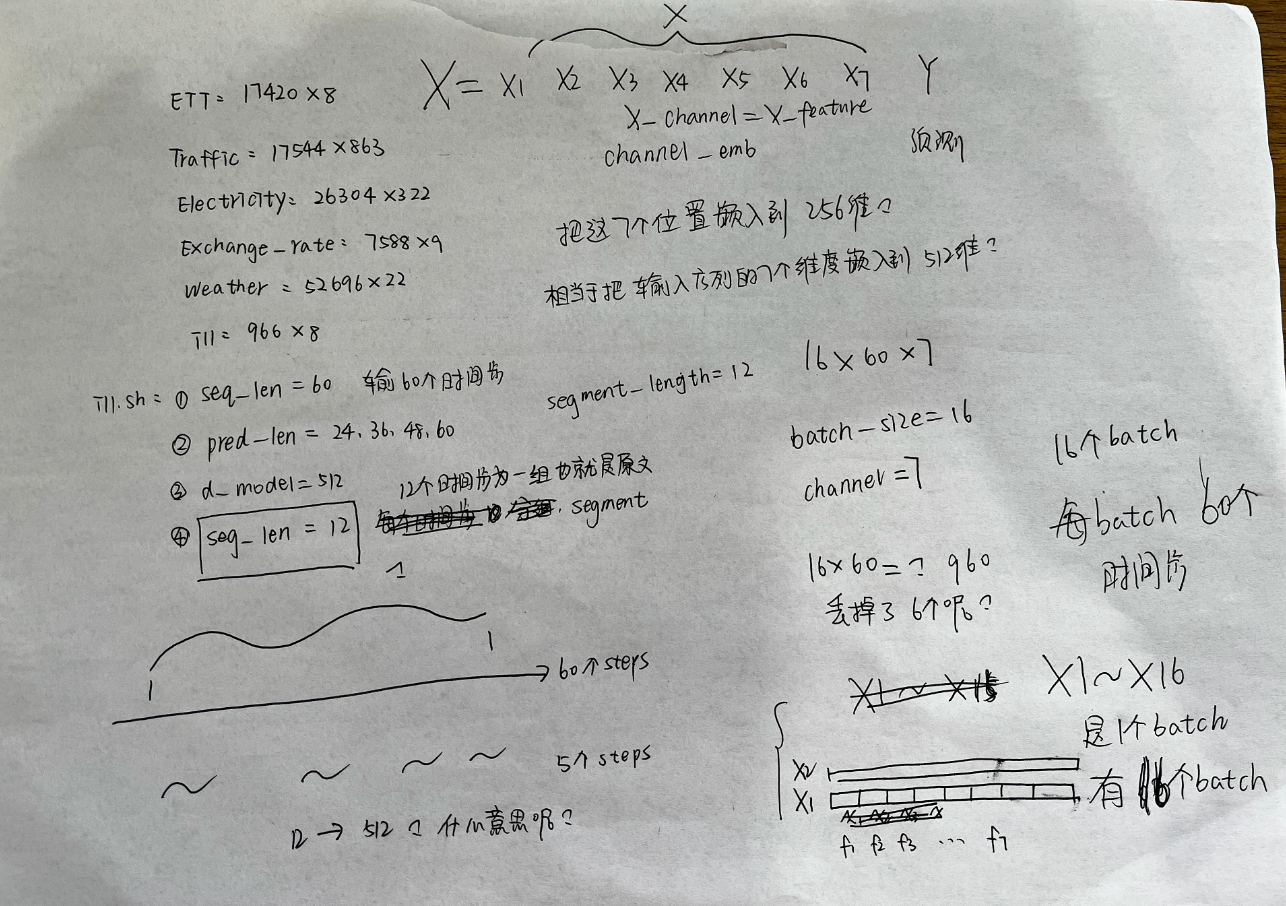 X
X = X1 X2 X3 X4 X5 X6 X7 Y
ETT = 17420×8
X_channel = X_feature
channel_emb
预测
Traffic = 17544×863
Electricity = 26304×322
把这7个位置嵌入到 256维?
Exchange_rate = 7588×9
Weather = 52696×22
相当于把 输入序列的7个维度嵌入到 512维?
Ill = 966×8
16×60×7
Ill.sh = ① seq_len = 60 输60个时间步
segment_length = 12
② pred_len = 24、36、48、60
③ d_model = 512
④ seg_len = 12
12个时间步为一组也就是原文
segment
batch_size = 16
channel = 7
16×60 = ? 960
丢掉了 6个呢?
16个batch
每batch 60个
时间步
1
60个steps
5个steps
12 → 512 ? 什么意思呢?
X1~X16
X1~X16
是1个batch
有16个batch
X2
X1
f1 f2 f3 … f7